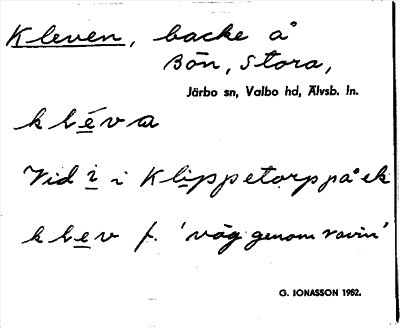 Kleven, backe å
Bön, Stora,
Järbo sn, Valbo hd, Älvsb. ln.
kléva
Vid i i Klippetorppåek
klev f. 'väg genom ravin'
G. IONASSON 1982.